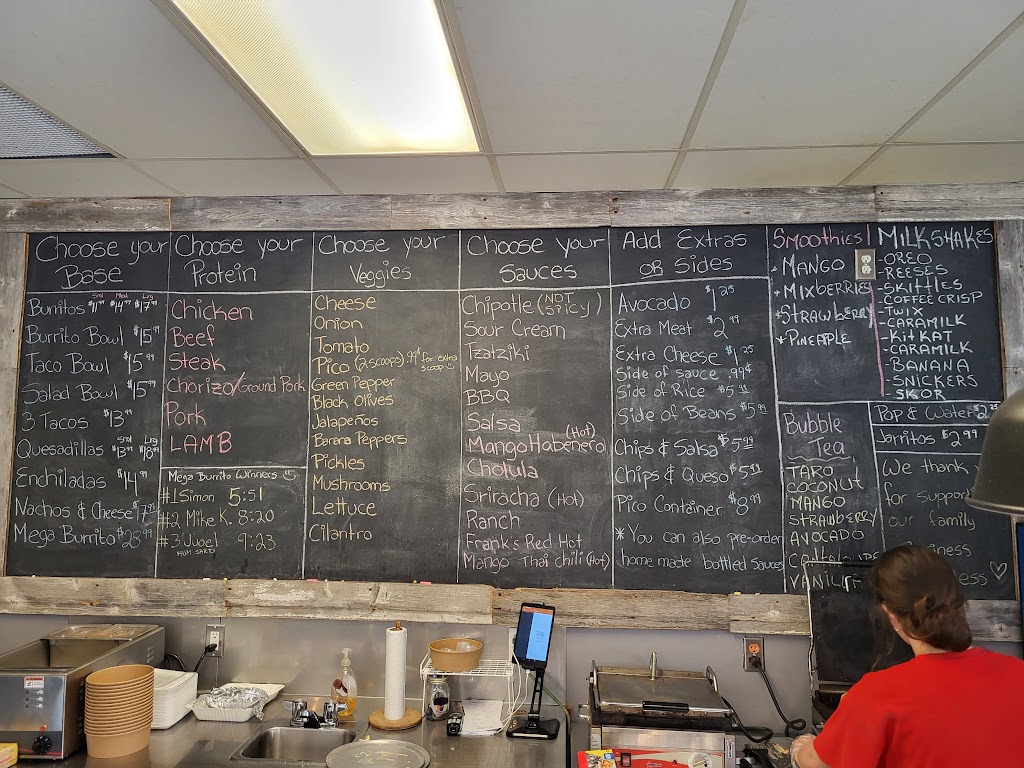 Choose your
Base
Sml Med Lrg
Burritos $11.99 $14.99 $17.99
Burrito Bowl $15.99
Taco Bowl $15.99
Salad Bowl $15.99
3 Tacos $13.99
Sml Lrg
Quesadillas $13.99 $18.99
Enchiladas $14.99
Nachos & Cheese $17.99
Mega Burrito $28.99
Choose your
Protein
Chicken
Beef
Steak
Chorizo/Ground Pork
Pork
LAMB
Mega Burrito Winners
#1 Simon 5:51
#2 Mike K. 8:20
#3 Juoel 9:23
FROM SARTO
Choose your
Veggies
Cheese
Onion
Tomato
Pico (2 scoops) .99¢ for extra
scoop
Green Pepper
Black Olives
Jalapeños
Banana Peppers
Pickles
Mushrooms
Lettuce
Cilantro
Choose your
Sauces
Chipotle (NOT
SPICY)
Sour Cream
Tzatziki
Mayo
BBQ
Salsa
Mango Habenero (Hot)
Cholula
Sriracha (Hot)
Ranch
Frank's Red Hot
Mango Thai Chili (Hot)
Add Extras
OR Sides
Avocado $1.25
Extra Meat $2.99
Extra Cheese $1.25
Side of sauce .99¢
Side of Rice $5.99
Side of Beans $5.99
Chips & Salsa $5.99
Chips & Queso $5.99
Pico Container $8.99
*You can also pre-order
home made bottled sauces
SMOOTHIES!
MANGO
MIXBERRIES
*STRAWBERRY
*PINEAPPLE
MILKSHAKES
-OREO
-REESES
-SKITTLES
-COFFEE CRISP
-TWIX
-CARAMILK
-KitKAT
-CARAMILK
-BANANA
-SNICKERS
-SKOR
Bubble
Tea
TARO
COCONUT
MANGO
STRAWBERRY
AVOCADO
Pop & Water $2.25
Jarritos $2.99
We thank
for
our family